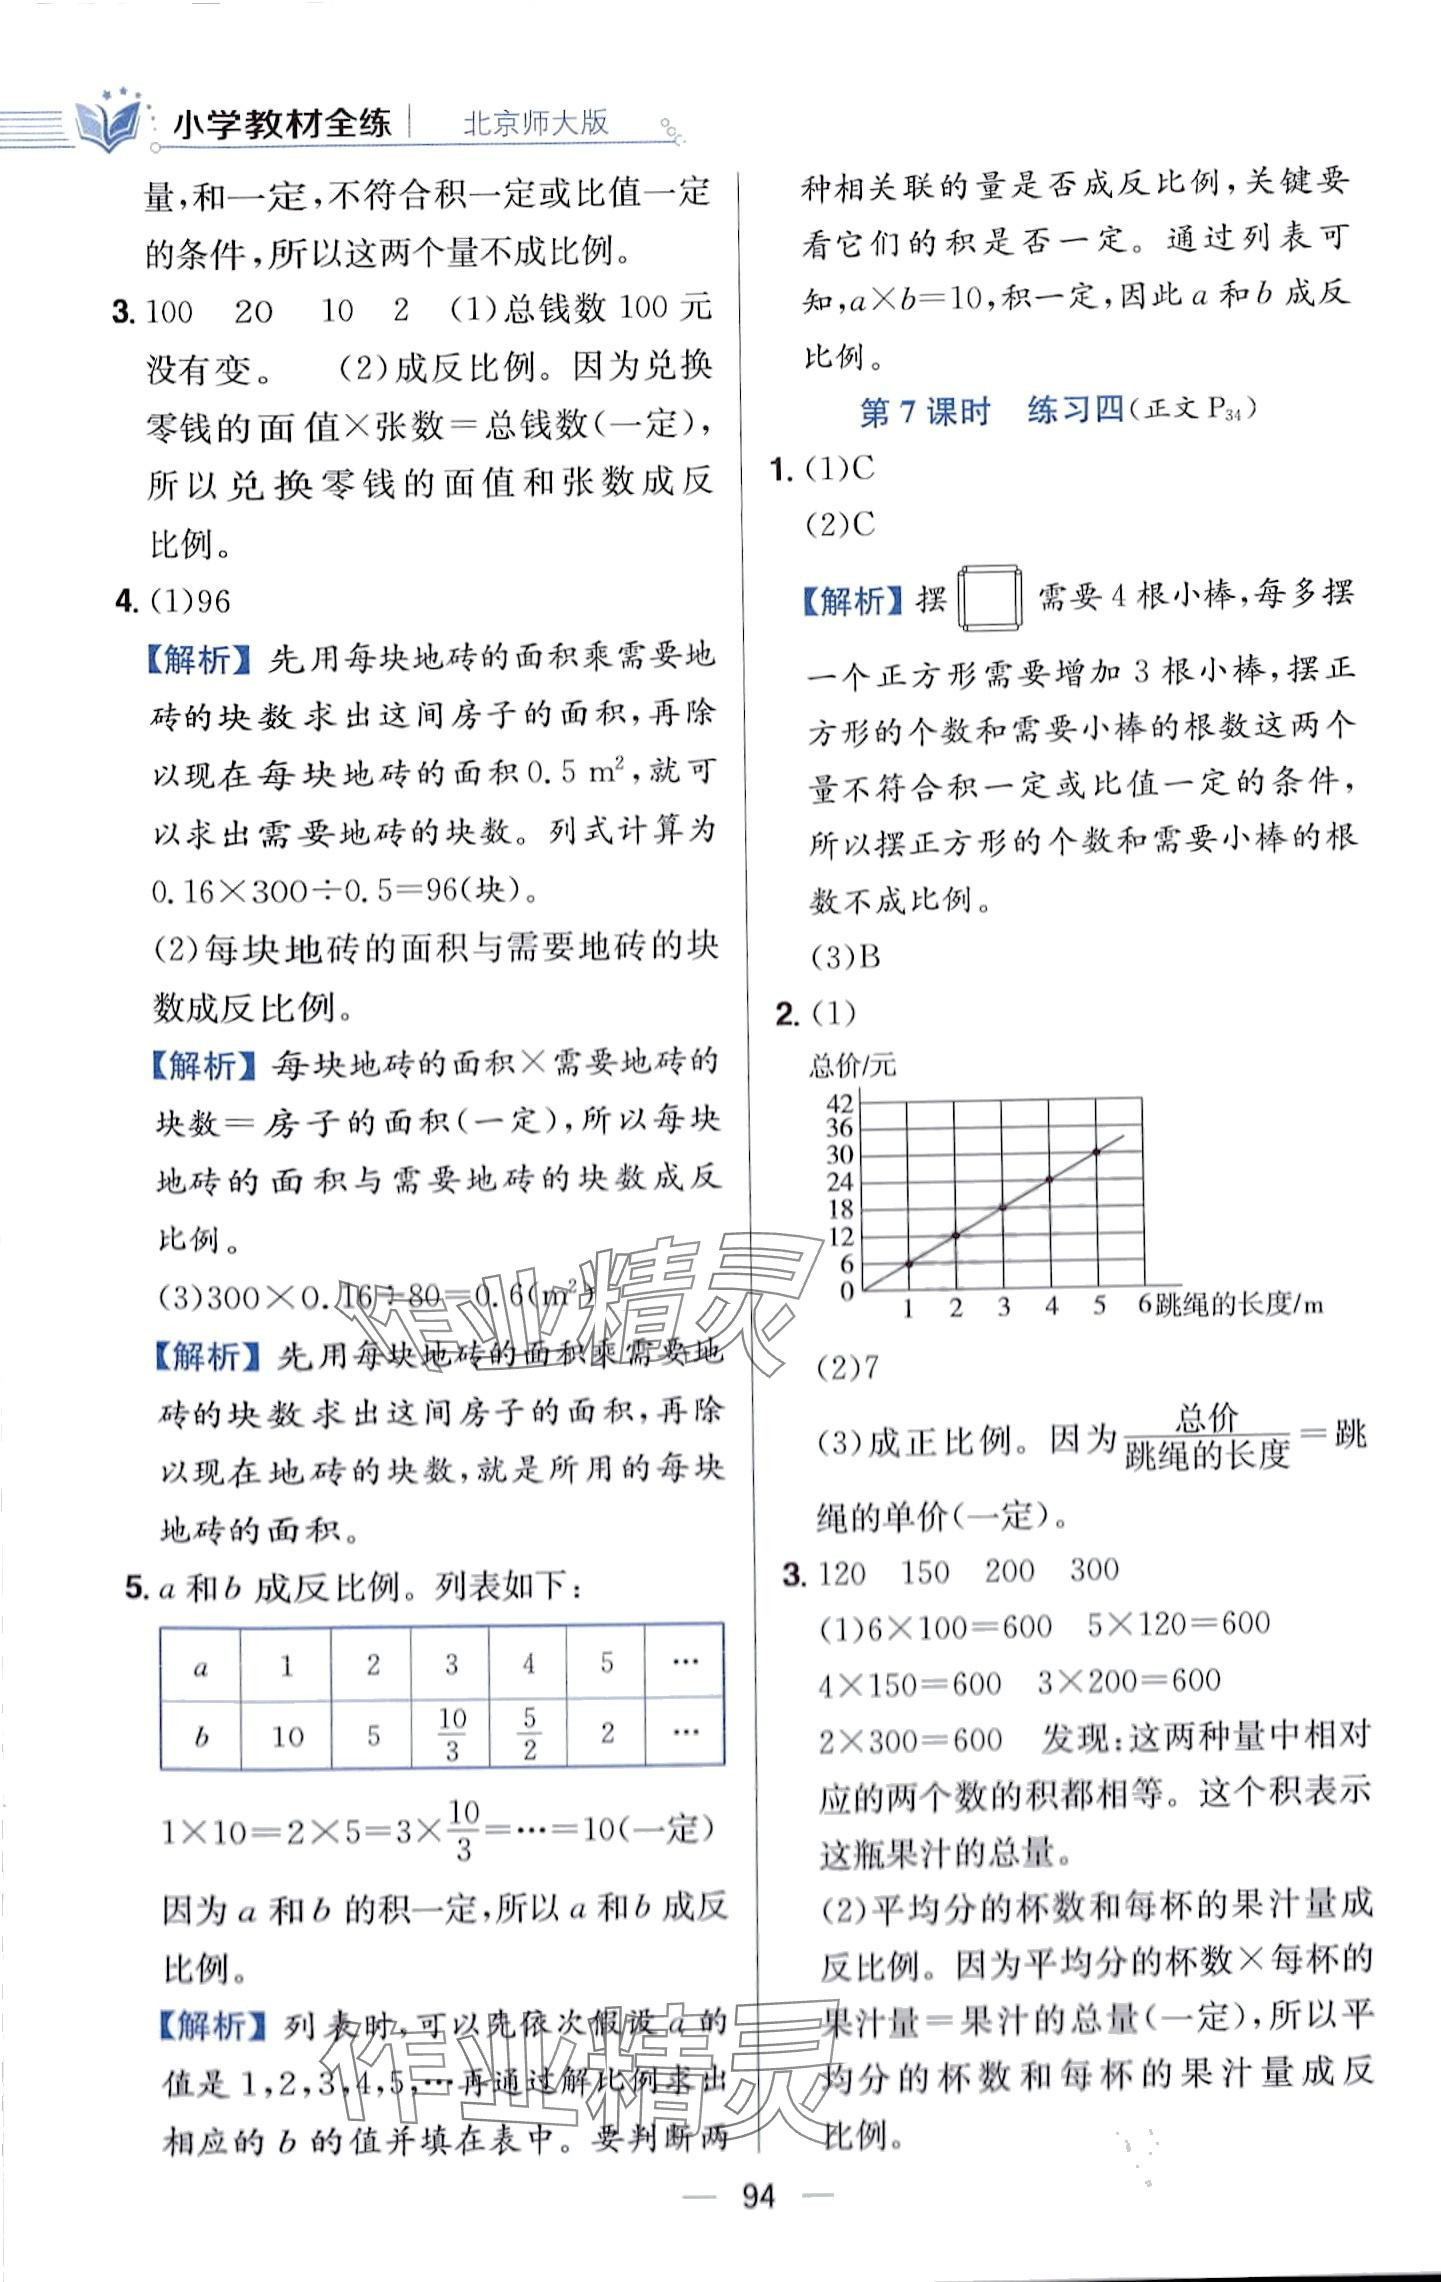 小学教材全练 北京师大版
量,和一定,不符合积一定或比值一定
的条件,所以这两个量不成比例。
3. 100 20 10 2 (1)总钱数100元
没有变。 (2)成反比例。因为兑换
零钱的面值×张数=总钱数(一定),
所以兑换零钱的面值和张数成反
比例。
4. (1)96
【解析】先用每块地砖的面积乘需要地
砖的块数求出这间房子的面积,再除
以现在每块地砖的面积0.5 m²,就可
以求出需要地砖的块数。列式计算为
0.16×300÷0.5=96(块)。
(2)每块地砖的面积与需要地砖的块
数成反比例。
【解析】每块地砖的面积×需要地砖的
块数=房子的面积(一定),所以每块
地砖的面积与需要地砖的块数成反
比例。
(3)300×0.16÷80=0.6(m²)
【解析】先用每块地砖的面积乘需要地
砖的块数求出这间房子的面积,再除
以现在地砖的块数,就是所用的每块
地砖的面积。
5. a和b成反比例。列表如下:
a 1 2 3 4 5 …
b 10 5 10/3 5/2 2 …
1×10=2×5=3×10/3=…=10(一定)
因为a和b的积一定,所以a和b成反
比例。
【解析】列表时,可以先依次假设a的
值是1,2,3,4,5,…再通过解比例求出
相应的b的值并填在表中。要判断两
种相关联的量是否成反比例,关键要
看它们的积是否一定。通过列表可
知,a×b=10,积一定,因此a和b成反
比例。
第7课时 练习四(正文P34)
1. (1)C
(2)C
【解析】摆 需要4根小棒,每多摆
一个正方形需要增加3根小棒,摆正
方形的个数和需要小棒的根数这两个
量不符合积一定或比值一定的条件,
所以摆正方形的个数和需要小棒的根
数不成比例。
(3)B
2. (1)
总价/元
42
36
30
24
18
12
6
0
1 2 3 4 5 6 跳绳的长度/m
(2)7
(3)成正比例。因为总价/跳绳的长度=跳
绳的单价(一定)。
3. 120 150 200 300
(1)6×100=600 5×120=600
4×150=600 3×200=600
2×300=600 发现:这两种量中相对
应的两个数的积都相等。这个积表示
这瓶果汁的总量。
(2)平均分的杯数和每杯的果汁量成
反比例。因为平均分的杯数×每杯的
果汁量=果汁的总量(一定),所以平
均分的杯数和每杯的果汁量成反
比例。
作业精灵
作业精灵
94